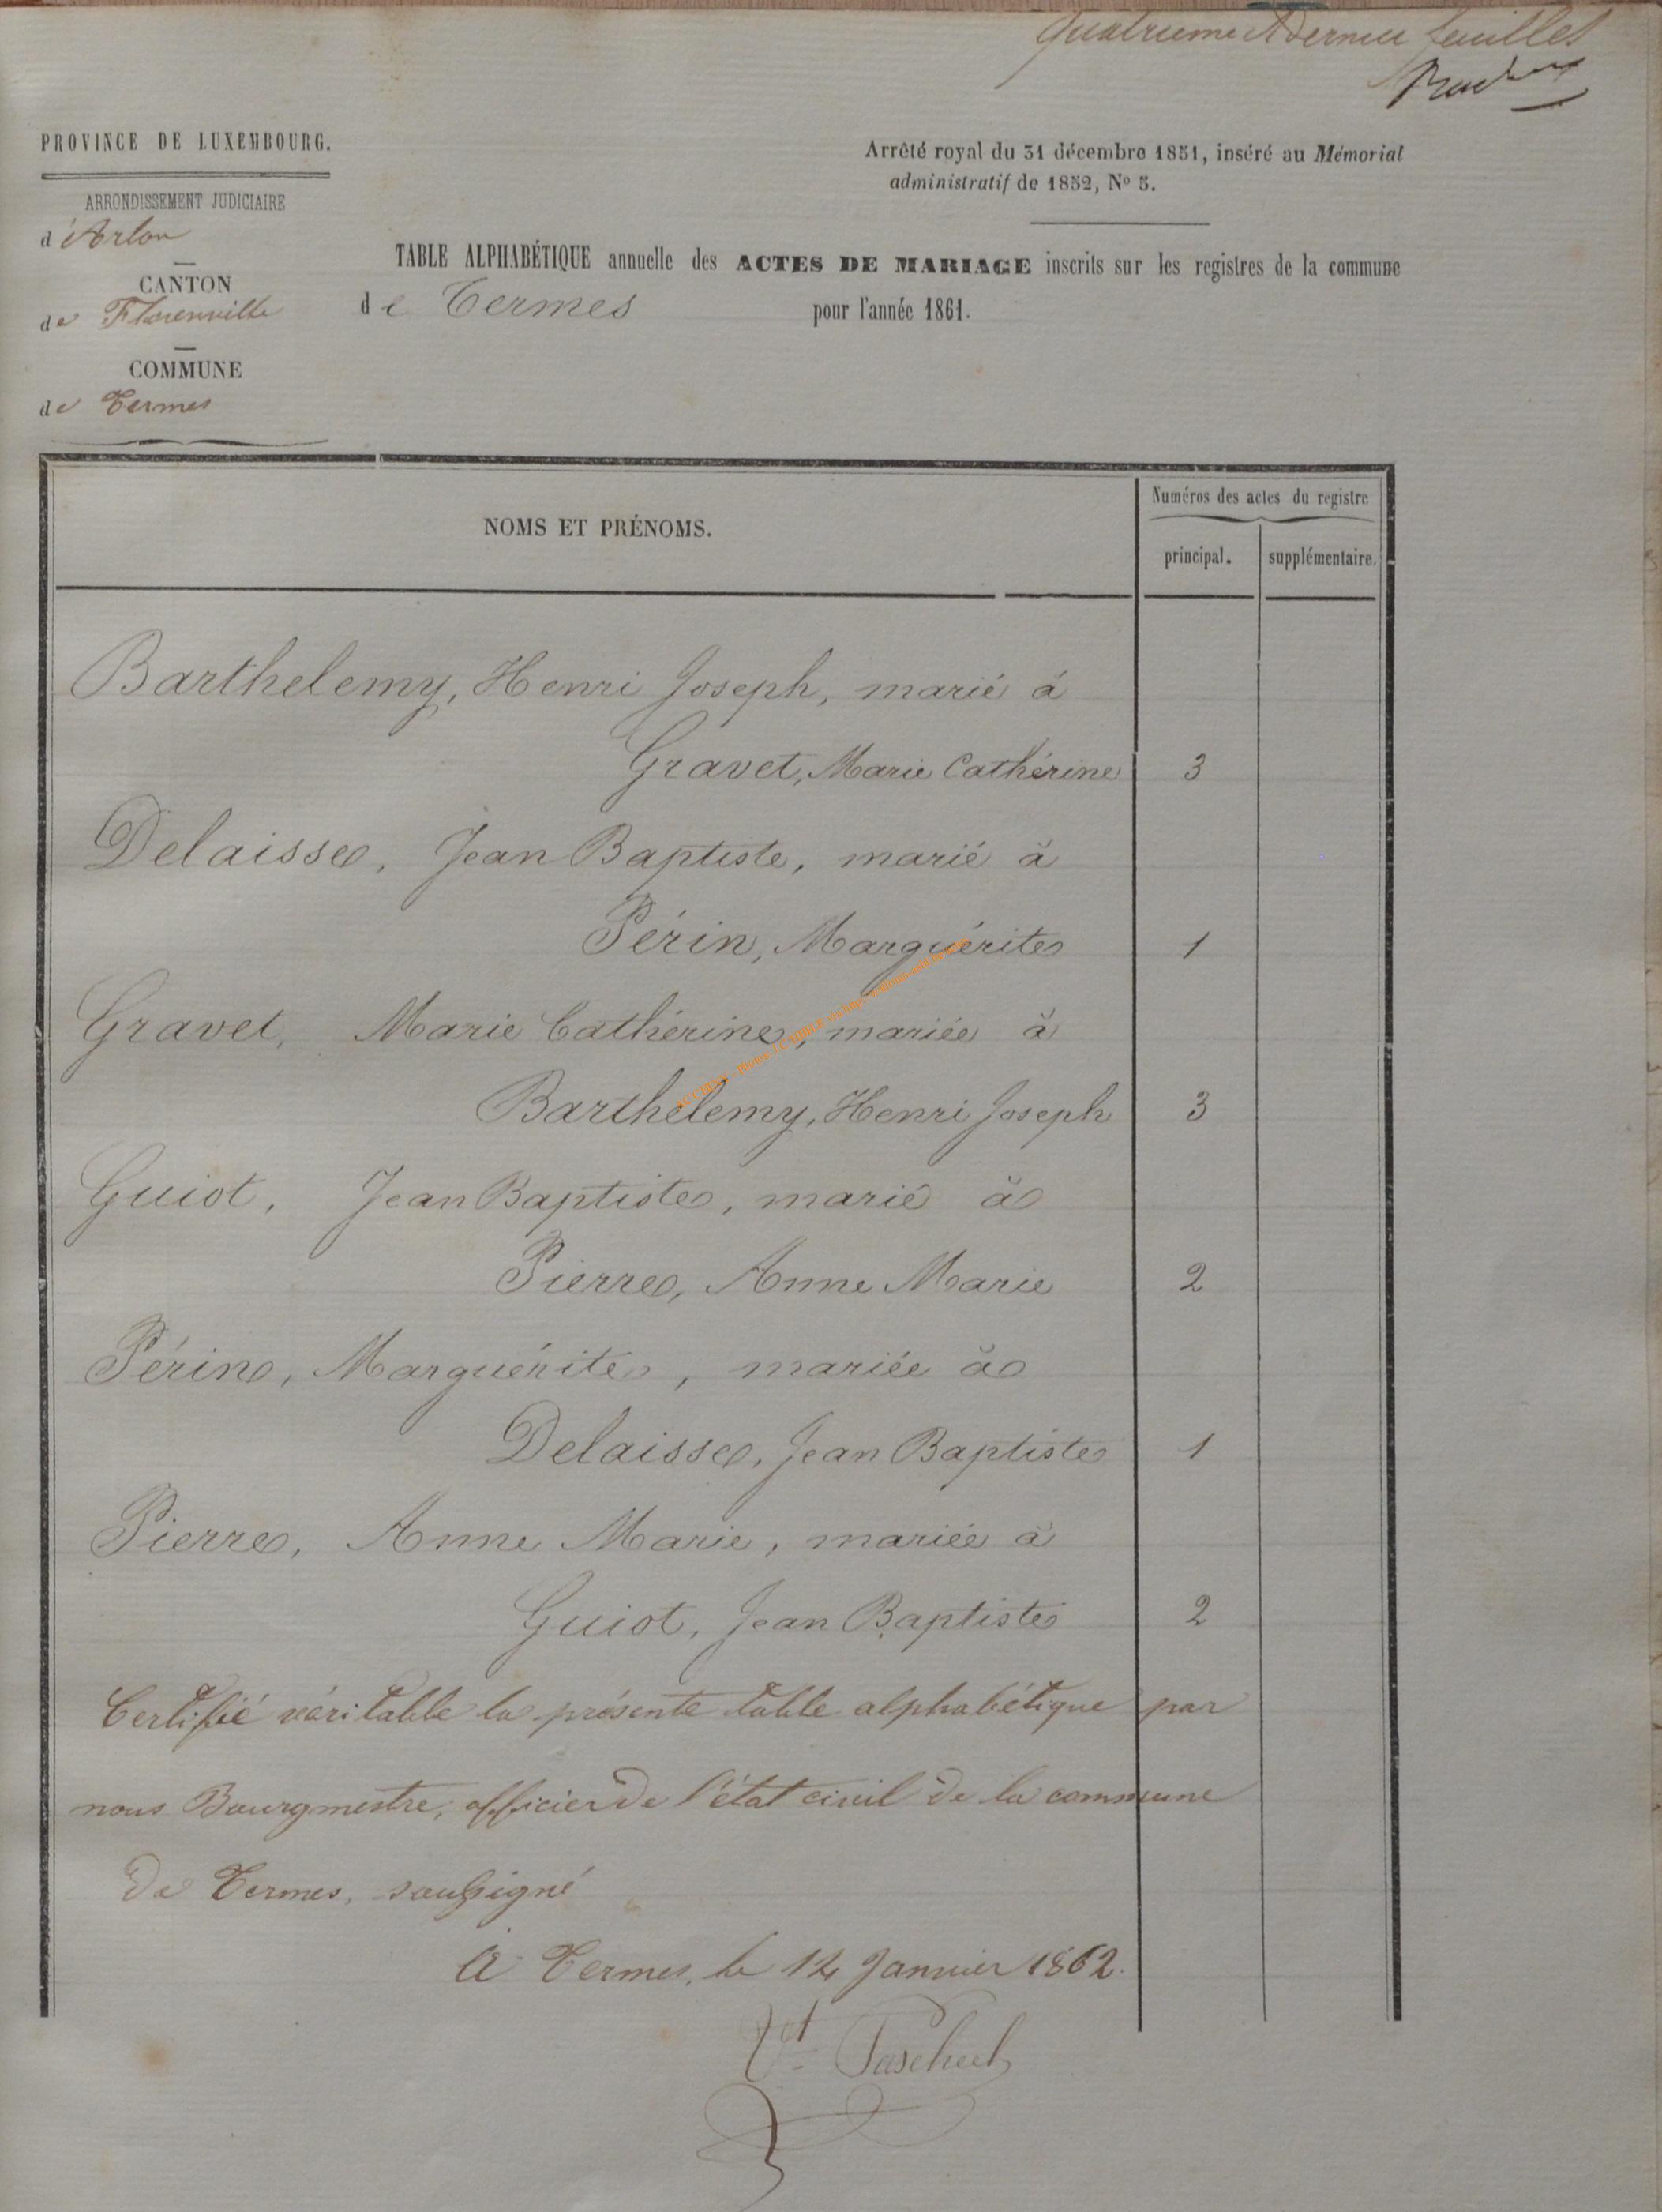 Quatrieme et dernier feuillet
PROVINCE DE LUXEMBOURG.
ARRONDISSEMENT JUDICIAIRE
d'Arlon
CANTON
de Florenville
COMMUNE
de Termes
Arrêté royal du 31 décembre 1851, inséré au Mémorial
administratif de 1852, No 5.
TABLE ALPHABÉTIQUE annuelle des ACTES DE MARIAGE inscrits sur les registres de la commune
de Termes pour l'année 1861.
NOMS ET PRÉNOMS.
Numéros des actes du registre
principal. supplémentaire.
Barthelemy, Henri Joseph, marié á
Gravet, Marie Cathérine 3
Delaisse, Jean Baptiste, marié à
Périn, Marguérite 1
Gravet, Marie Cathérine, mariée à
Barthélemy, Henri Joseph 3
Guiot, Jean Baptiste, marié à
Pierre, Anne Marie 2
Périn, Marguérite, mariée à
Delaisse, Jean Baptiste 1
Pierre, Anne Marie, mariée à
Guiot, Jean Baptiste 2
Certifié véritable la présente table alphabétique par
nous Bourgmestre, officier de l'état civil de la commune
de Termes, soussigné
A Termes, le 14 Janvier 1862.